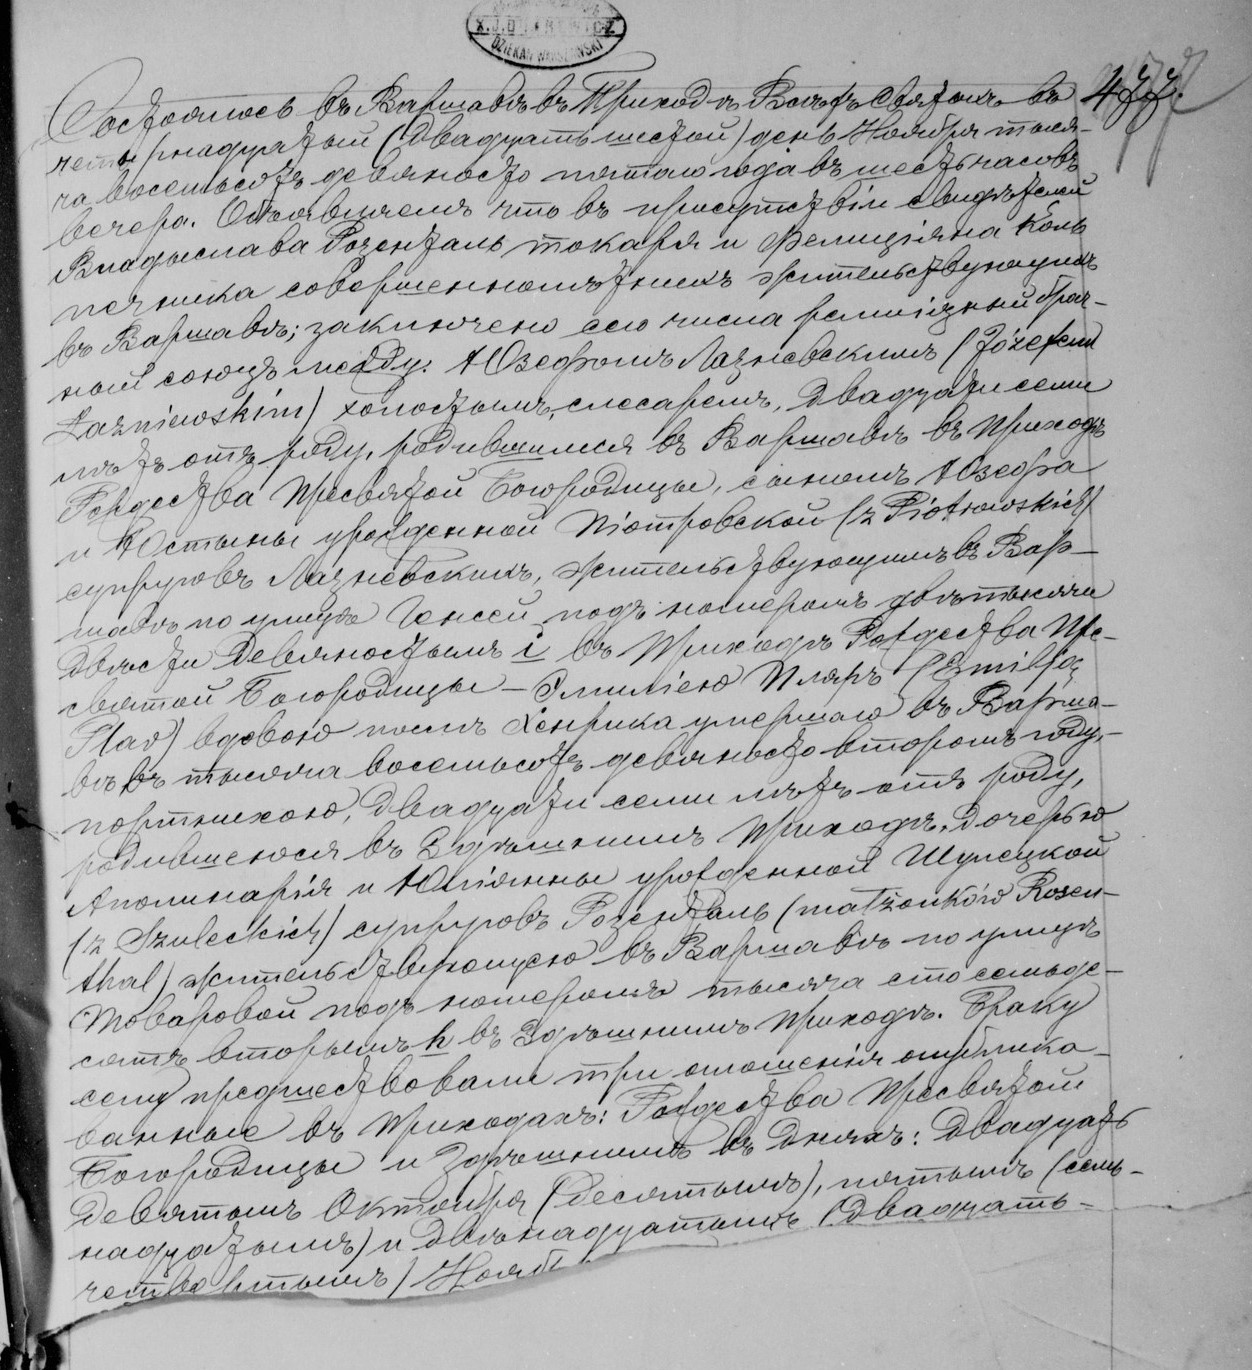 X. J. DU
DZIEKAN WARSZAWSKI
477.
Состоялось въ Варшавѣ въ Приходѣ Всѣхъ Святыхъ въ
четырнадцатый (двадцать шестой) день Ноября тыся-
ча восемьсотъ девяносто пятаго года въ шесть часовъ
вечера. Объявляемъ что въ присутствіи свидѣтелей
Владыслава Розенталь токаря и Фелиціяна Коль
печника совершеннолѣтнихъ жительствующихъ
въ Варшавѣ; заключено сего числа религіозный брач-
ный союзъ между: Юзефомъ Лазневскимъ (Józefem
Łazniewskim) холостымъ, слесаремъ, двадцати семи
лѣтъ отъ роду, родившимся въ Варшавѣ въ Приходѣ
Рождества Пресвятой Богородицы, сыномъ Юзефа
и Юстыны урожденной Піотровской (z Piotrowskich)
супруговъ Лазневскихъ, жительствующимъ въ Вар-
шавѣ по улицѣ Генсей подъ номеромъ двѣ тысячи
двѣсти девяностымъ i въ Приходѣ Рождества Пре-
святой Богородицы – Эмиліею Пляръ (Emilją
Plar) вдовою послѣ Хенрика умершаго въ Варша-
вѣ въ тысяча восемьсотъ девяносто второмъ году,-
портнихою, двадцати семи лѣтъ отъ роду,
родившеюся въ Здѣшнимъ Приходѣ, дочерью
Аполинарія и Юліянны урожденной Шулецкой
(z Szuleckich) супруговъ Розенталь (małżonków Rosen-
thal) жительствующею въ Варшавѣ по улицѣ
Товаровой подъ номеромъ тысяча сто семьде-
сятъ вторымъ h въ Здѣшнимъ Приходѣ. Браку
сему предшествовали три оглашенія опублико-
ванные въ Приходахъ: Рождества Пресвятой
Богородицы и Здѣшнимъ въ дняхъ: двадцать
девятымъ Октября (десятымъ), пятымъ (семь-
надцатымъ) и двѣнадцатымъ (двадцать-
четвертымъ) Нояб